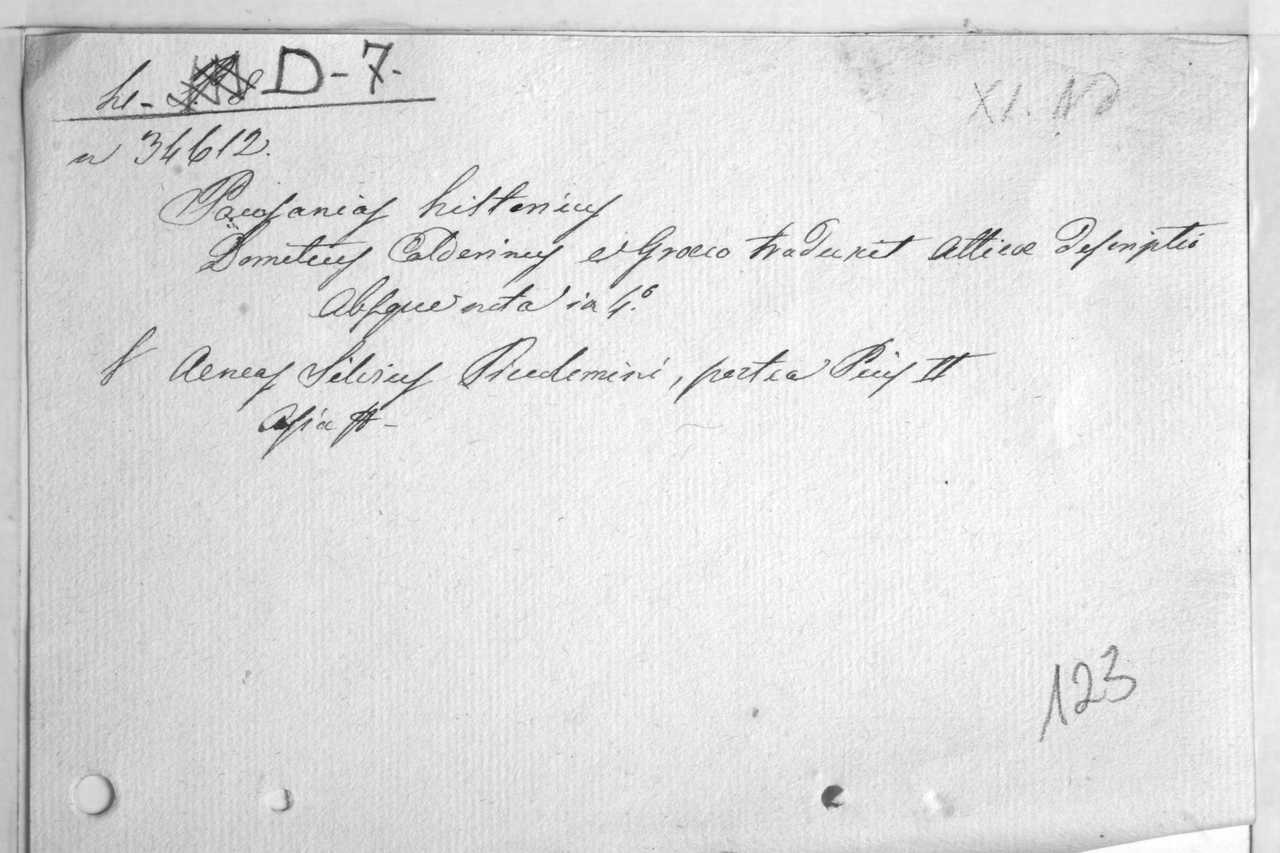 h1- D-7.
XI.
n 34612.
Pausanias historicus
Domitius Calderinus e Graeco traduxit Atticae descriptio
absque nota in 4.º
§ Aeneas Silvius Picolomini, postea Pius II
Asia
123